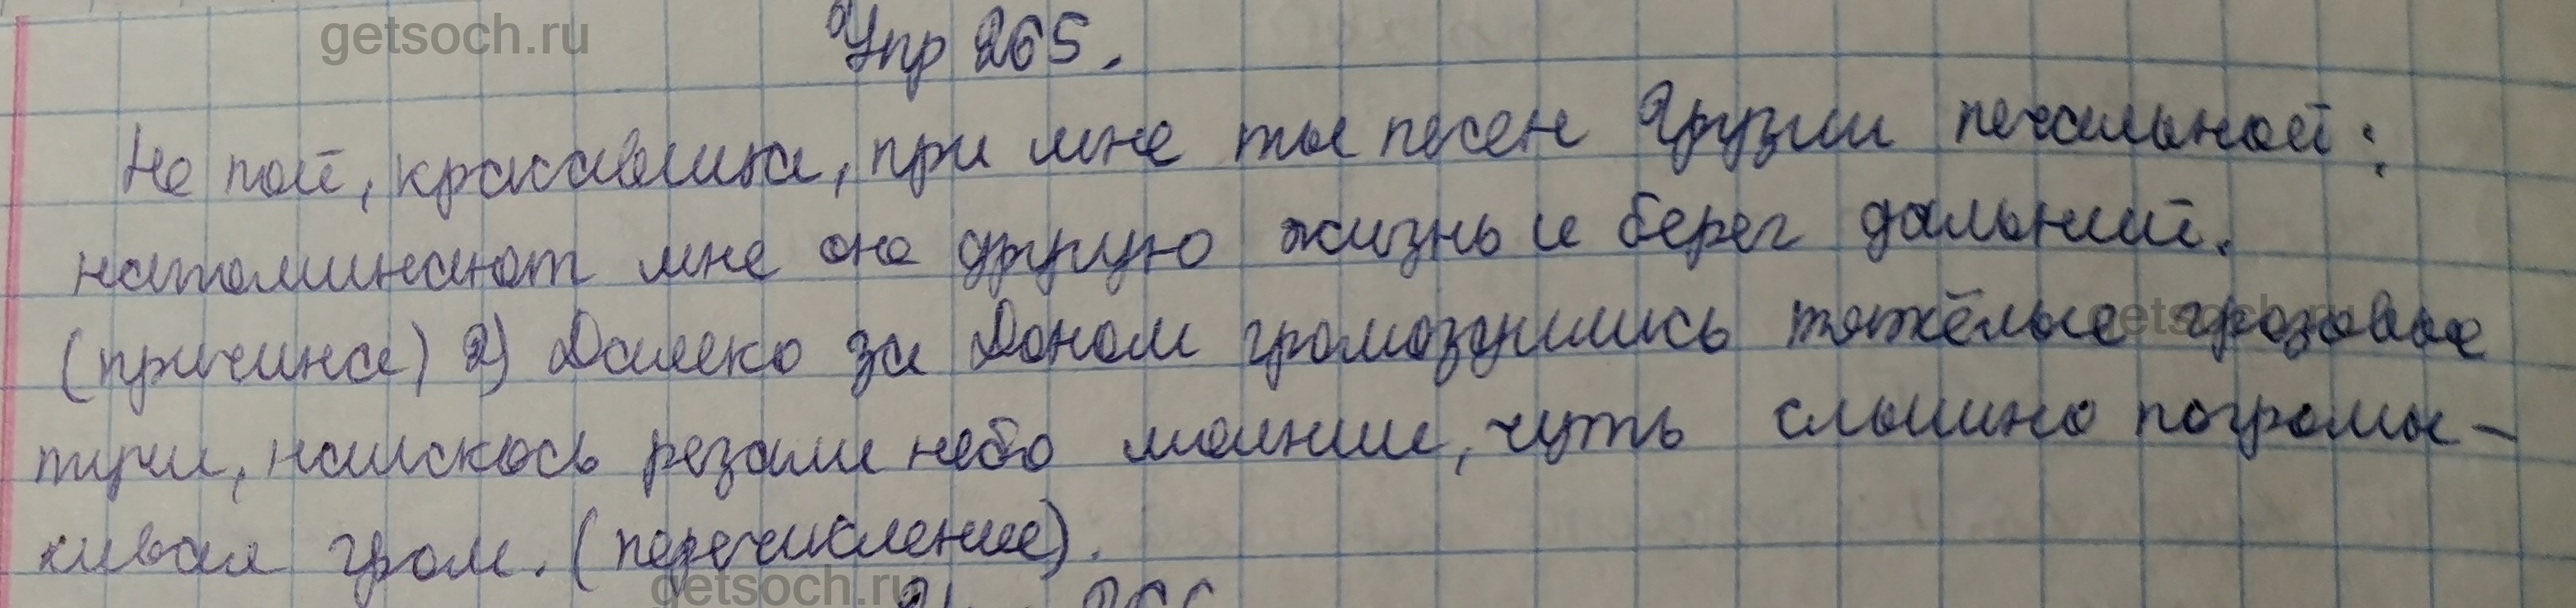 getsoch.ru
Упр 265.
Не пой, красавица, при мне ты песен Грузии печальной:
напоминают мне оне другую жизнь и берег дальний.
getsoch.ru
(причина) 2) Далеко за Доном громоздились тяжёлые грозовые
тучи, наискось резали небо молнии, чуть слышно погромы-
хивал гром. (перечисление).
getsoch.ru